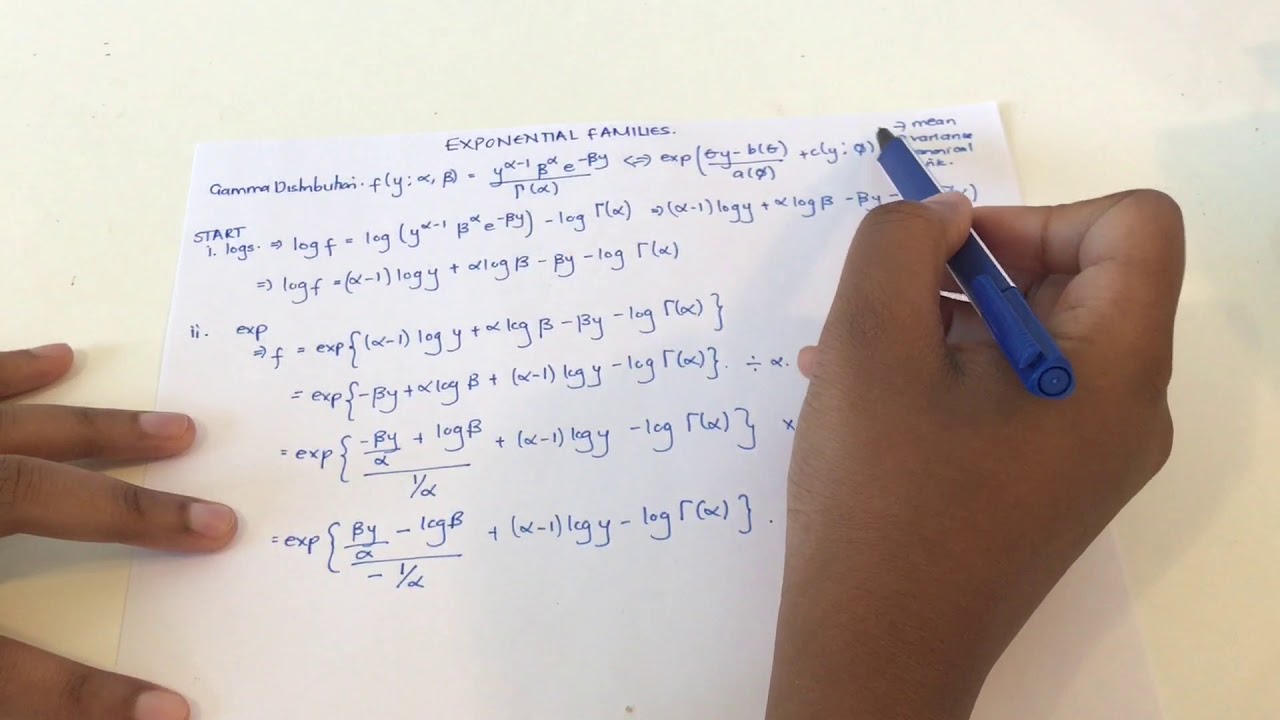 EXPONENTIAL FAMILIES.
→ mean
variance
Gamma Distribution. f(y; α, β) = y^(α-1) β^α e^(-βy) / Γ(α) ⇔ exp( (θy - b(θ)) / a(φ) + c(y; φ) )
START
i. logs. ⇒ log f = log (y^(α-1) β^α e^(-βy)) - log Γ(α) ⇒ (α-1) log y + α log β - βy -
⇒ log f = (α-1) log y + α log β - βy - log Γ(α)
ii. exp
⇒ f = exp{(α-1) log y + α log β - βy - log Γ(α)}
= exp{-βy + α log β + (α-1) log y - log Γ(α)}. ÷ α.
= exp{ (-βy/α + log β) / (1/α) + (α-1) log y - log Γ(α)} ×
= exp{ (βy/α - log β) / (-1/α) + (α-1) log y - log Γ(α)}.